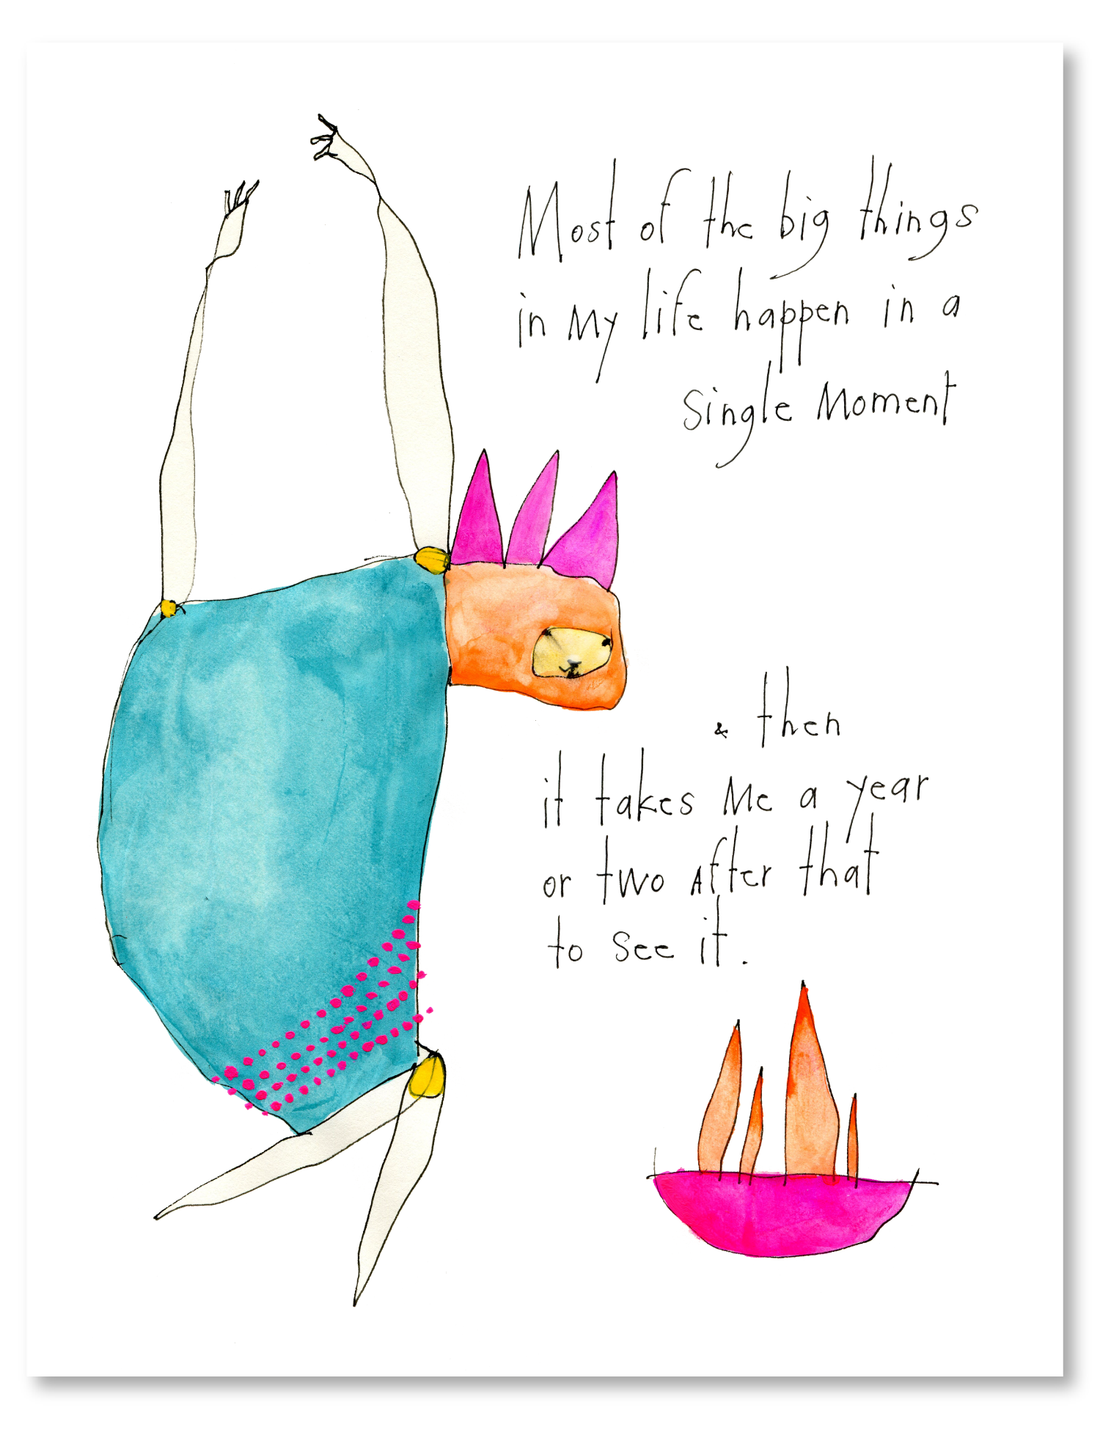 Most of the big things
in my life happen in a
single moment
& then
it takes me a year
or two after that
to see it.